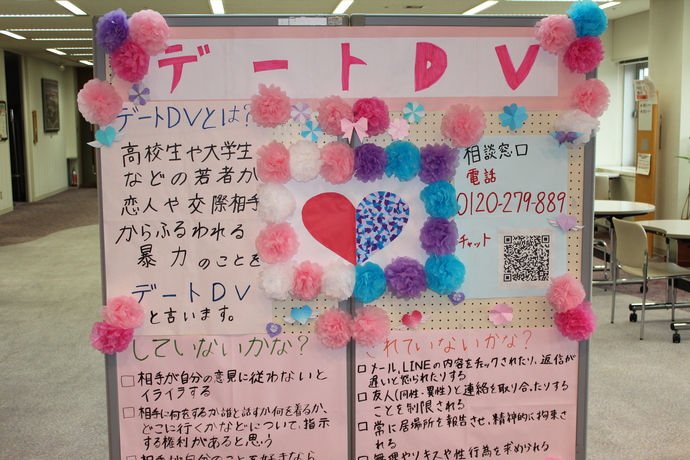 デートDV
デートDVとは?
高校生や大学生
などの若者が
恋人や交際相手
からふるわれる
暴力のことを
デートDV
と言います。
相談窓口
電話
0120-279-889
チャット
していないかな?
□相手が自分の意見に従わないと
イライラする
□相手に何をするか誰と話すか何を着るか、
どこに行くかなどについて、指示
する権利があると思う
□相手が自分のことを好きなら
されていないかな?
□メール、LINEの内容をチェックされたり、返信が
遅いと怒られたりする
□友人(同性・異性)と連絡を取り合ったりする
ことを制限される
□常に居場所を報告させ、精神的に拘束さ
れる
□無理やりキスや性行為を求められる